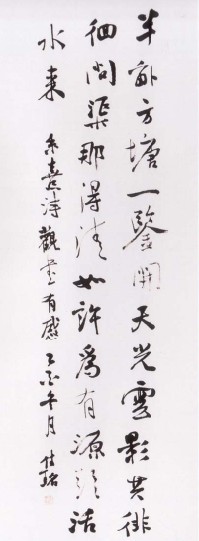 半畝方塘一鑒開天光雲影共徘
徊問渠那得清如許爲有源頭活
水来 朱熹詩觀書有感